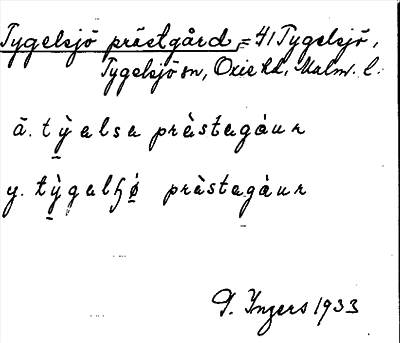 Tygelsjö prästgård, = 41 Tygelsjö,
Tygelsjö sn, Oxie hd, Malm. l.
ä. tỳ̠ɐlsɐ prὰstɐgáuʀ
y. tỳ̠gɐlɧǿ̠ prὰstɐgáuʀ
I. Ingers 1933